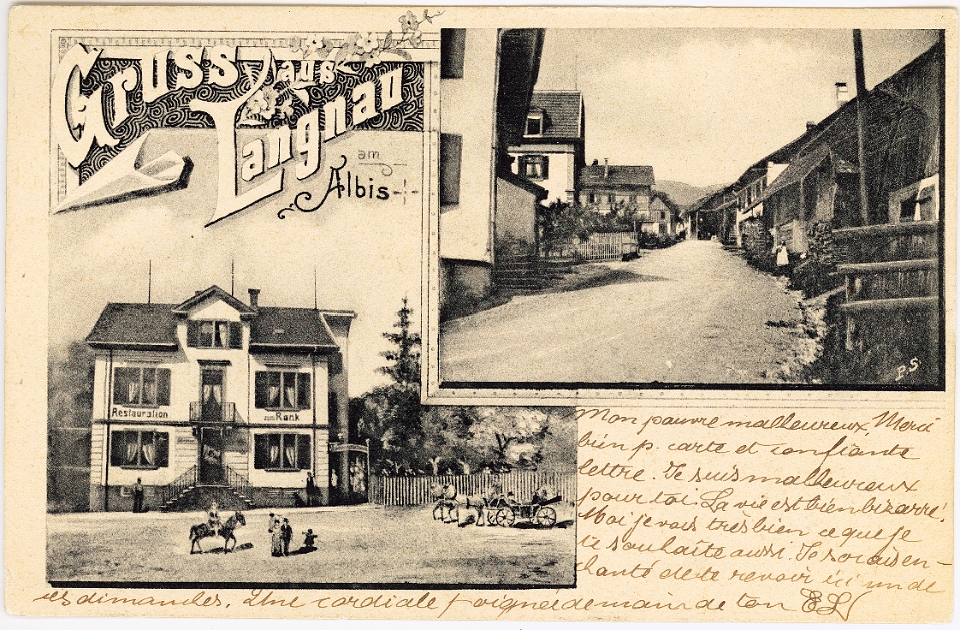 Gruss aus
Langnau
am
Albis
Restauration zum Rank
P.S
Mon pauvre malleureux Merci
bien p. carte et confiante
lettre. Je suis malleureux
pour toi. La vie est bien bizarre!
Moi je vais tres bien ce que je
te souhaite aussi. Je serais en-
chanté de te revoir ici un de
ces dimanches. Une cordiale poignée de main de ton EL